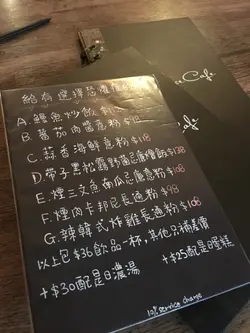 給有選擇恐懼
A. 鰻魚炒飯
B. 蕃茄肉醬意粉
C. 蒜香海鮮意粉 $138
D. 帶子黑松露野菌忌廉燴飯 $138
E. 煙三文魚南瓜忌廉意粉 $108
F. 煙肉卡邦尼長通粉 $98
G. 辣韓式炸雞長通粉 $108
以上包$36飲品一杯，其他只補差價
+$30配是日濃湯
+$25配是日蛋糕
10% service charge
Cafe